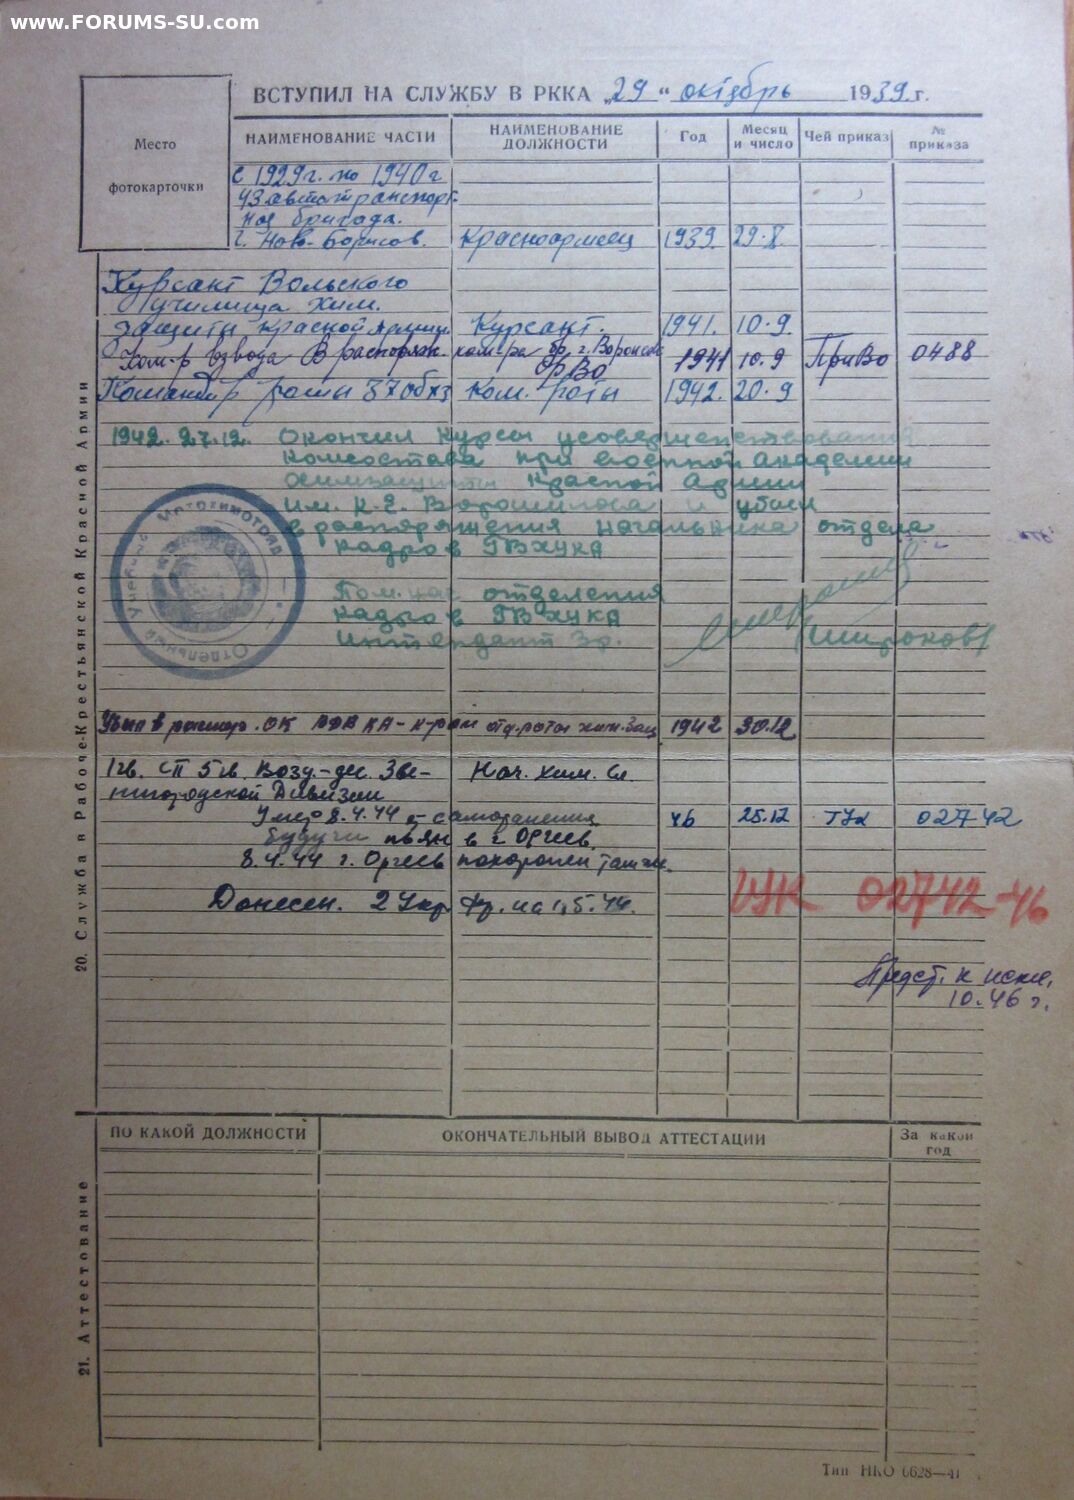 www.FORUMS-SU.com
ВСТУПИЛ НА СЛУЖБУ В РККА „29“ октябрь 1939 г.
Место
фотокарточки
НАИМЕНОВАНИЕ ЧАСТИ
НАИМЕНОВАНИЕ ДОЛЖНОСТИ
Год
Месяц и число
Чей приказ
№ приказа
с 1929 г. по 1940 г
43 автотранспорт-
ная бригада.
г. Ново-Борисов. Красноармеец 1939 29.X.
Курсант Вольского
училища хим.
защиты Красной Армии. Курсант. 1941. 10.9.
Ком-р взвода В распоряж. ком-ра бр. г. Воронеж 1941 10.9 ПриВо 0488
ОрВо
Командир роты 37 обхз Ком. роты 1942. 20.9
1942. 27.12. Окончил курсы усовершенствования
комсостава при военной академии
химзащиты Красной Армии
им. К. Е. Ворошилова и убыл
в распоряжения начальника отдела
кадров ГВХУКА
Пом. нач отделения
кадров ГВХУКА
интендант 3р. Широков
Отдельный Учебный Мотохимотряд
Убыл в распор. ОК ВДВ КА - к-ром отд. роты хим. защ. 1942 30.12
1 гв. СП 5 гв. Возд.-дес. Зве- Нач. хим. сл.
нигородской Дивизии
Умер 8.4.44 от саморанения 46 25.12 ГУК 02742
будучи пьян в г. Оргеев.
8.4.44 г. Оргеев похоронен там же.
Донесен. 2 Укр Фр. на 1.5.44.
ГУК 02742-46
Предст. к искл.
10.46 г.
20. Служба в Рабоче-Крестьянской Красной Армии
ПО КАКОЙ ДОЛЖНОСТИ
ОКОНЧАТЕЛЬНЫЙ ВЫВОД АТТЕСТАЦИИ
За какой год
21. Аттестование
Тип НКО 6628—41